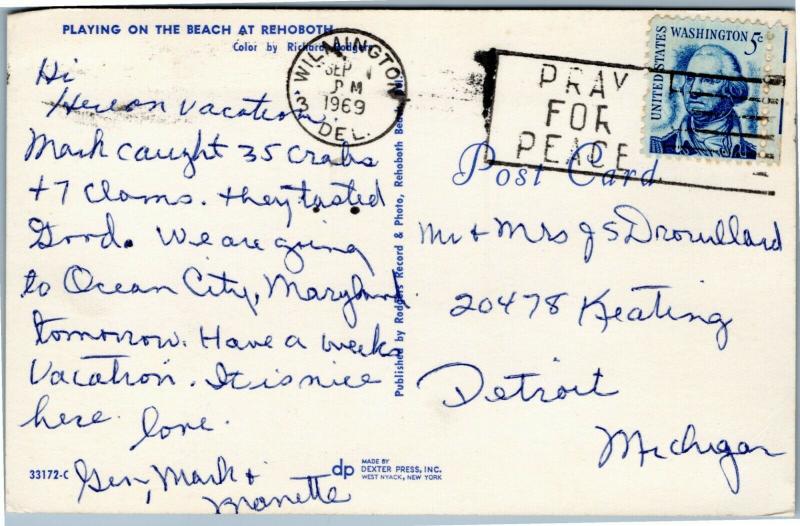 PLAYING ON THE BEACH AT REHOBOTH
Color by Richard Rodgers
Hi
Here on vacation,
Mark caught 35 crabs
+ 7 clams. they tasted
Good. We are going
to Ocean City, Maryland
tomorrow. Have a weeks
Vacation. It is nice
here. love.
Gen, Mark &
Nanette
33172-C
dp
MADE BY
DEXTER PRESS, INC.
WEST NYACK, NEW YORK
Published by Rodgers Record & Photo, Rehoboth Beach, Del.
WILMINGTON
SEP
3 PM
1969
DEL.
PRAY
FOR
PEACE
UNITED STATES
WASHINGTON 5¢
Post Card
Mr & Mrs J S Drouillard
20478 Keating
Detroit
Michigan